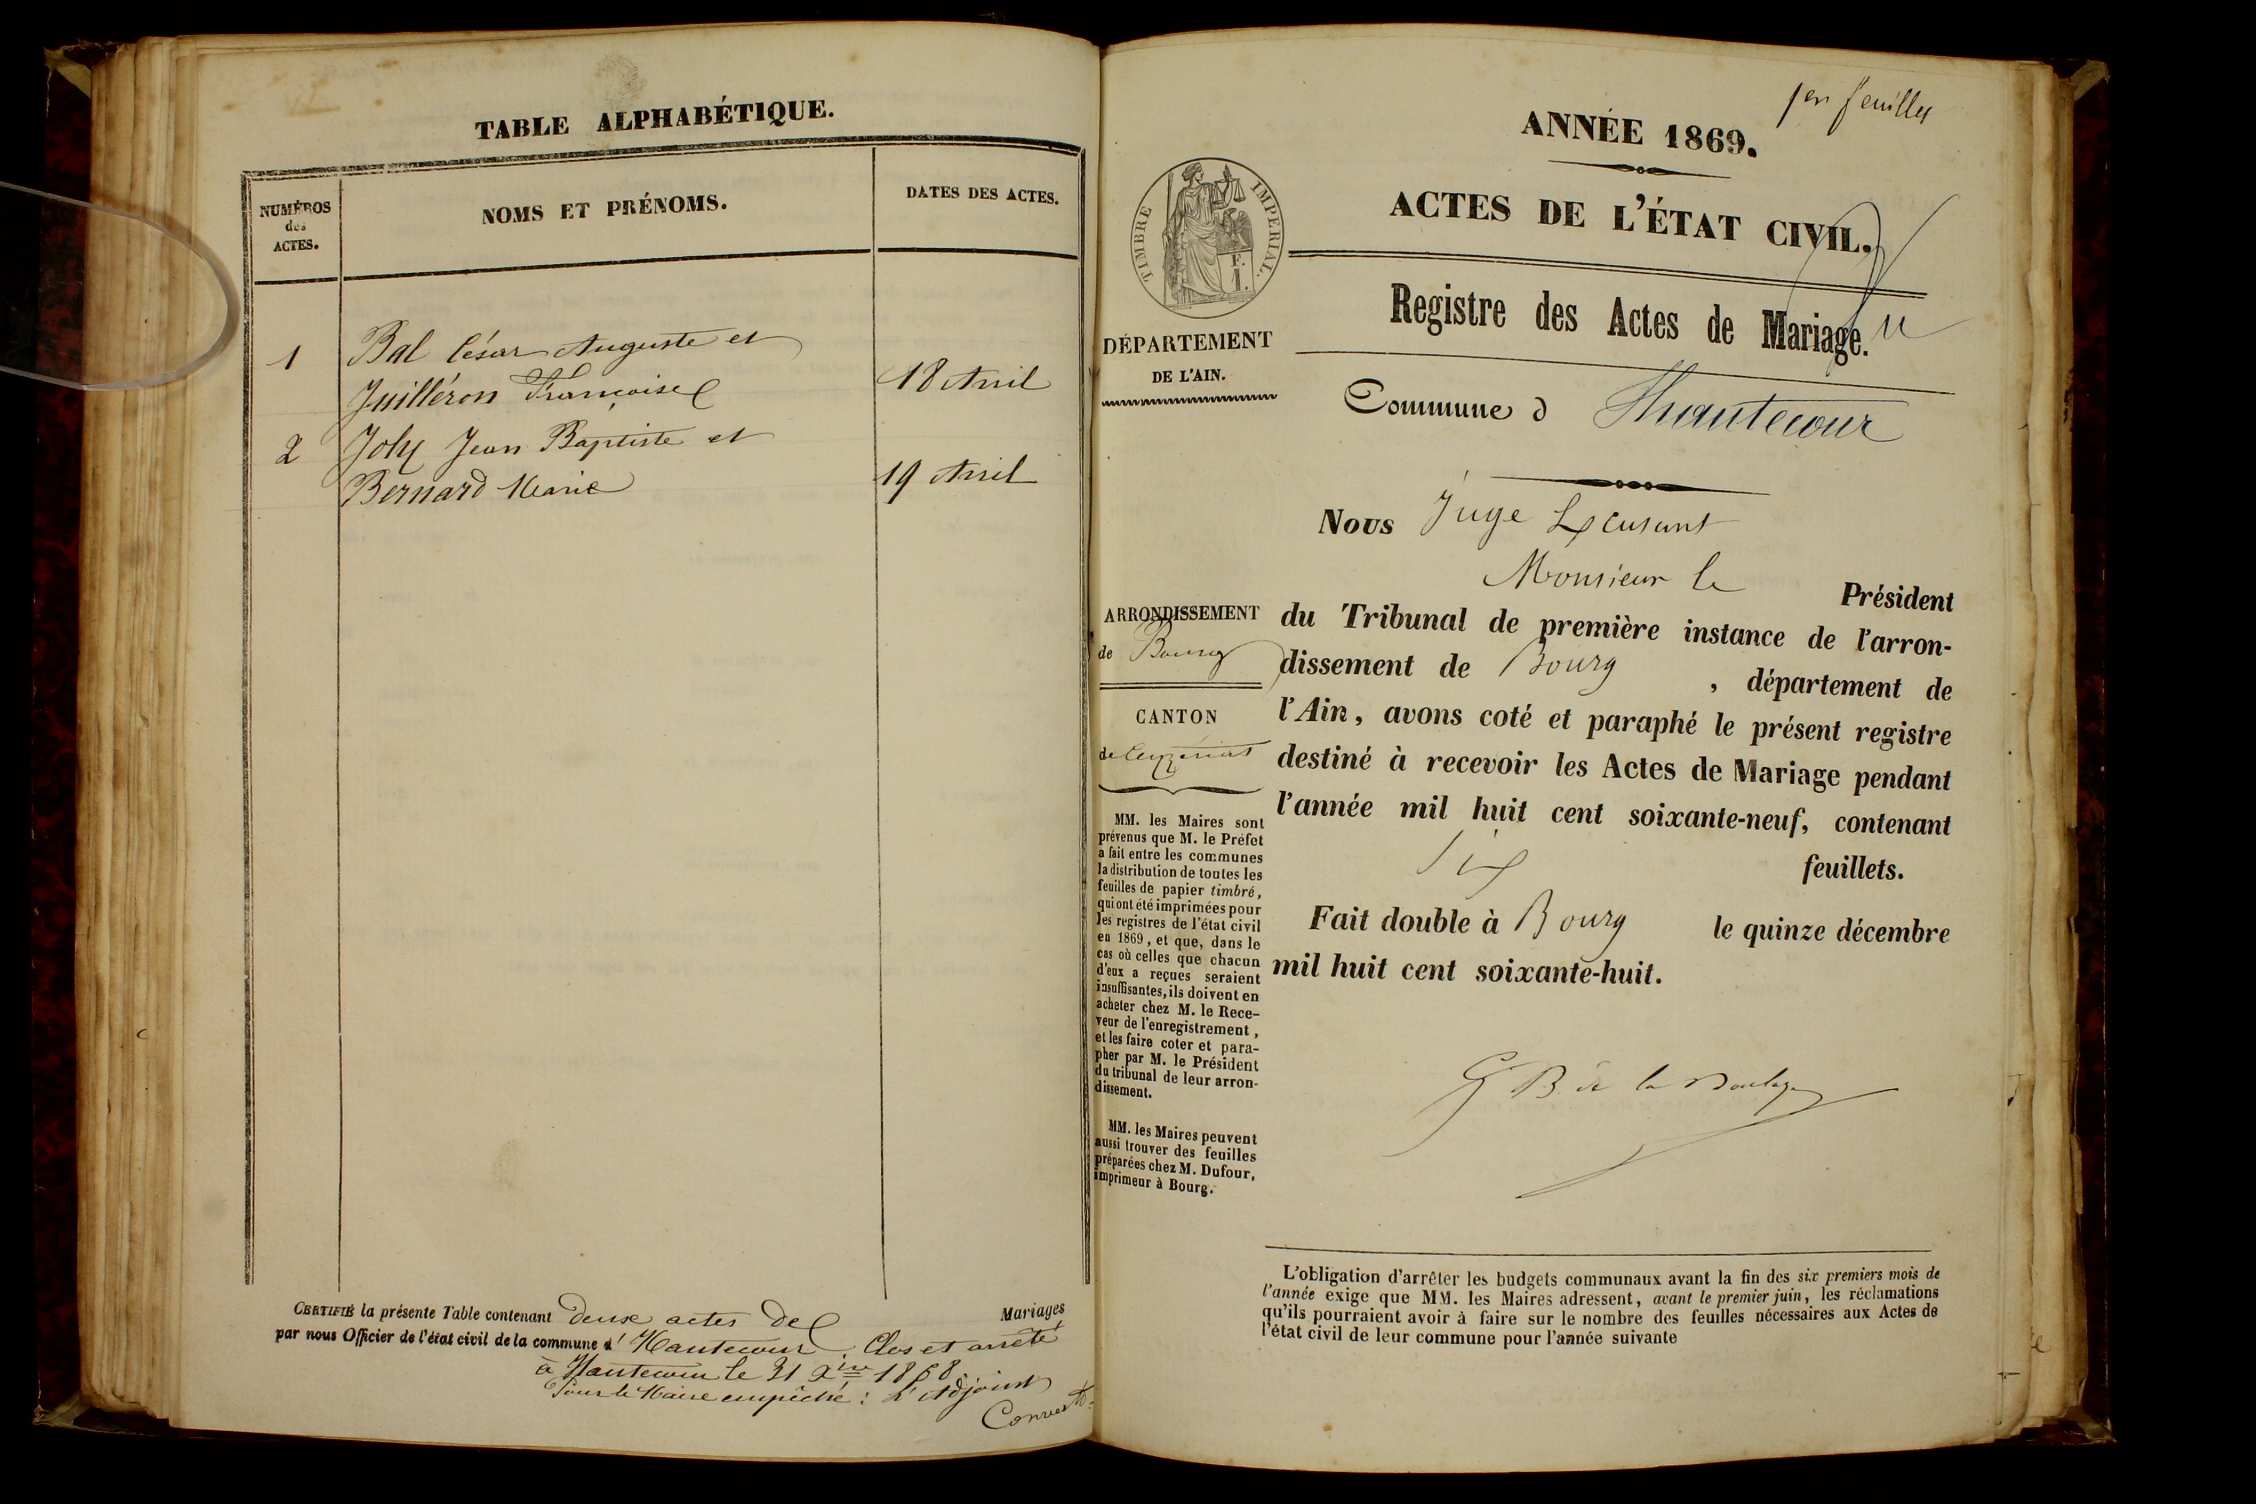 TABLE ALPHABÉTIQUE.
NUMÉROS
des
ACTES.
NOMS ET PRÉNOMS.
DATES DES ACTES.
1
Bal César Auguste et
Juilléron Françoise
18 Avril
2
Joly Jean Baptiste et
Bernard Marie
19 Avril
CERTIFIÉ la présente Table contenant deux actes de Mariages
par nous Officier de l'état civil de la commune d' Hautecour Clos et arrêté
à Hautecour le 31 Xbre 1868.
Pour le Maire empêché : L'Adjoint
Convert
1er feuillet
ANNÉE 1869.
ACTES DE L'ÉTAT CIVIL.
TIMBRE IMPÉRIAL.
F.
1.
Registre des Actes de Mariage.
DÉPARTEMENT
DE L'AIN.
Commune d Hautecour
Nous Juge
Monsieur le Président
du Tribunal de première instance de l'arron-
dissement de Bourg , département de
l'Ain, avons coté et paraphé le présent registre
destiné à recevoir les Actes de Mariage pendant
l'année mil huit cent soixante-neuf, contenant
six feuillets.
Fait double à Bourg le quinze décembre
mil huit cent soixante-huit.
G B de la
ARRONDISSEMENT
de Bourg
CANTON
de Ceyzériat
MM. les Maires sont
prévenus que M. le Préfet
a fait entre les communes
la distribution de toutes les
feuilles de papier timbré,
qui ont été imprimées pour
les registres de l'état civil
en 1869, et que, dans le
cas où celles que chacun
d'eux a reçues seraient
insuffisantes, ils doivent en
acheter chez M. le Rece-
veur de l'enregistrement,
et les faire coter et para-
pher par M. le Président
du tribunal de leur arron-
dissement.
MM. les Maires peuvent
aussi trouver des feuilles
préparées chez M. Dufour,
imprimeur à Bourg.
L'obligation d'arrêter les budgets communaux avant la fin des six premiers mois de
l'année exige que MM. les Maires adressent, avant le premier juin, les réclamations
qu'ils pourraient avoir à faire sur le nombre des feuilles nécessaires aux Actes de
l'état civil de leur commune pour l'année suivante